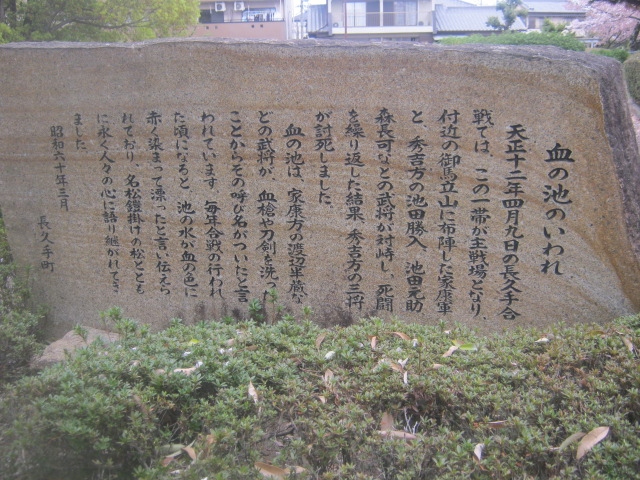 血の池のいわれ
天正十二年四月九日の長久手合
戦では、この一帯が主戦場となり、
付近の御馬立山に布陣した家康軍
と、秀吉方の池田勝入、池田元助
森長可などの武将が対峙し、死闘
を繰り返した結果、秀吉方の三将
が討死しました。
血の池は、家康方の渡辺半蔵な
どの武将が、血槍や刀剣を洗った
ことからその呼び名がついたと言
われています。毎年合戦の行われ
た頃になると、池の水が血の色に
赤く染まって漂ったと言い伝えら
れており、名松鎧掛けの松ととも
に永く人々の心に語り継がれてき
ました。
昭和六十年三月 長久手町